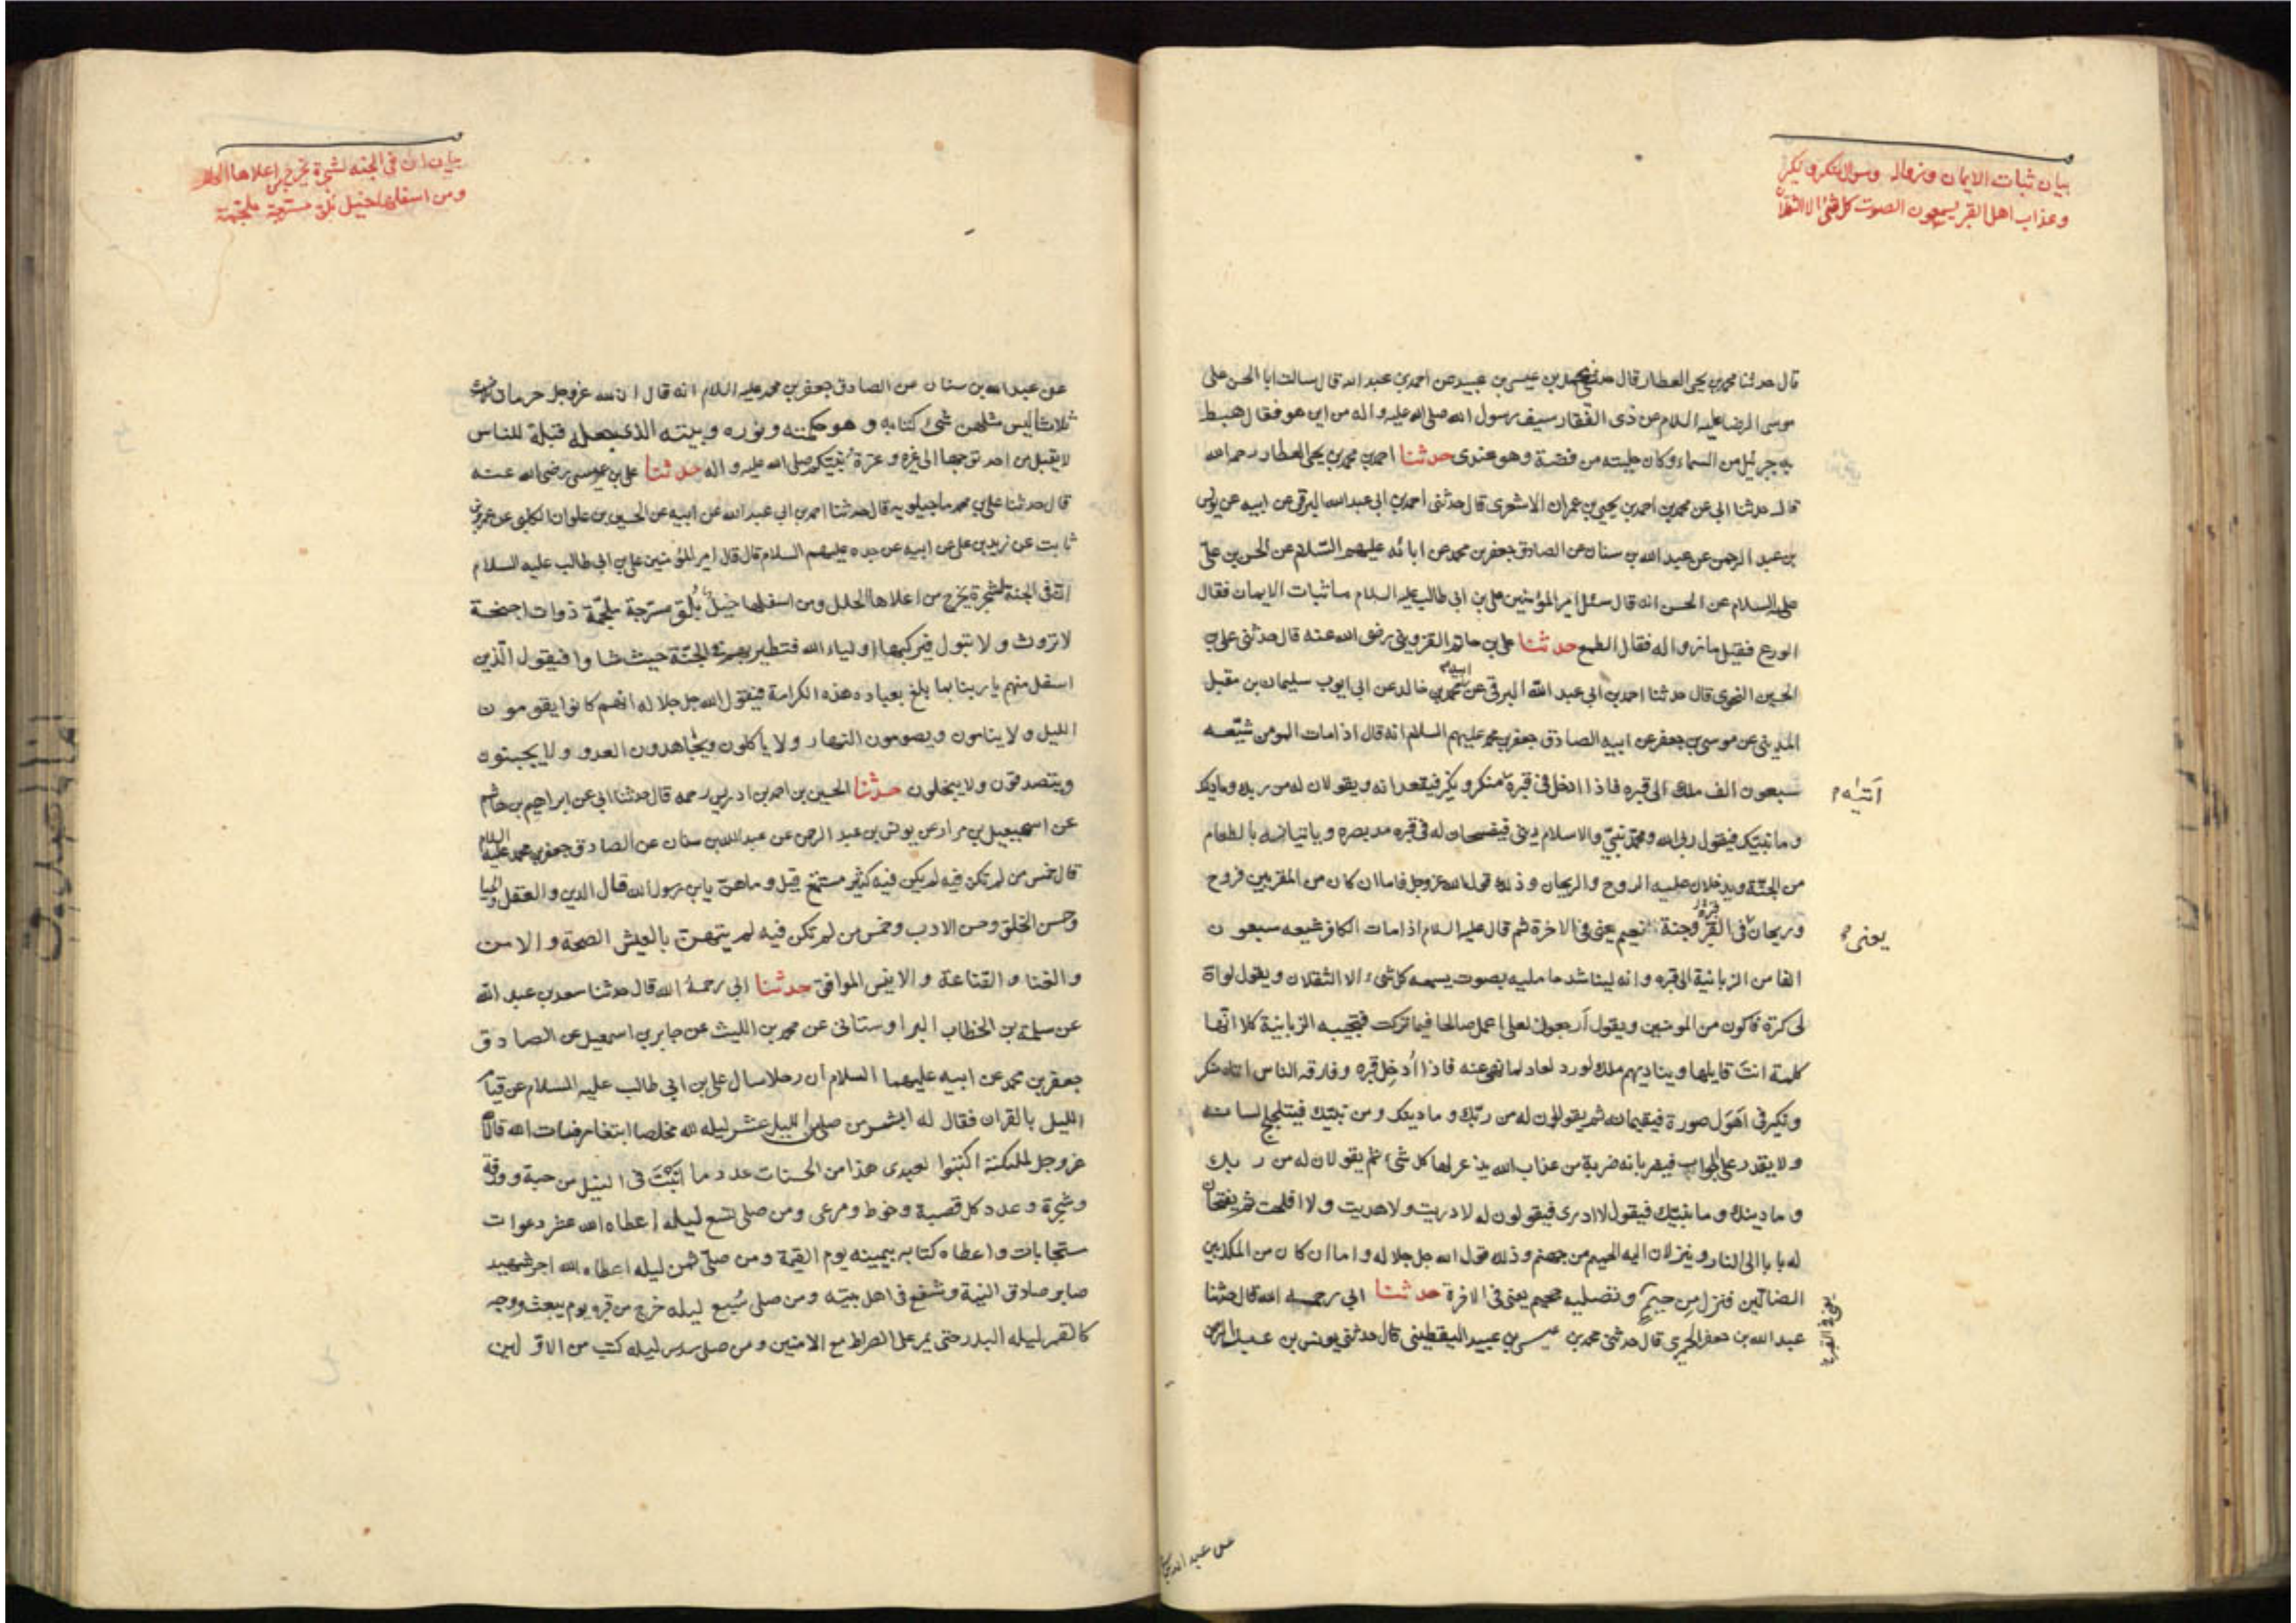 بيان ثبات الايمان وزواله وسوال منكر ونكير
وعذاب اهل القبر يسمعون الصوت كل شئ الا الثقلان
قال حدثنا محمد بن يحيى العطار قال حدثنى محمد بن عيسى بن عبيد عن احمد بن عبد الله قال سالت ابا الحسن على
موسى الرضا عليه السلام عن ذى الفقار سيف رسول الله صلى الله عليه واله من اين هو فقال هبط
به جبرئيل من السماء وكان حليته من فضة وهو عندى حدثنا احمد بن محمد بن يحيى العطار رحمه الله
قال حدثنا ابى عن محمد بن احمد بن يحيى بن عمران الاشعرى قال حدثنى احمد بن ابى عبد الله البرقى عن ابيه عن يونس
بن عبد الرحمن عن عبد الله بن سنان عن الصادق جعفر بن محمد عن ابائه عليهم السّلام عن الحسن بن علىّ
عليه السلام عن الحسن انه قال سئل امير المؤمنين على بن ابى طالب عليه السلام ما ثبات الايمان فقال
الورع فقيل ما زواله فقال الطمع حدثنا على بن حاتم القزوينى رضى الله عنه قال حدثنى على بن
الحسين النحوى قال حدثنا احمد بن ابى عبد الله البرقى عن ابيه محمد بن خالد عن ابى ايوب سليمان بن مقبل
المدينى عن موسى بن جعفر عن ابيه الصادق جعفر بن محمد عليهم السلام انه قال اذا مات المومن شيّعه
سبعون الف ملك الى قبره فاذا ادخل فى قبره منكر ونكير فيقعدانه ويقولان له من ربك وما دينك
اتيه م
وما نبيّك فيقول ربى الله ومحمّد نبيّى والاسلام دينى فيفسحان له فى قبره مد بصره وياتيانه بالطعام
من الجنّة ويدخلان عليه الروح والريحان وذلك قوله الله عزوجل فاما ان كان من المقربين فروح
وريحان فى القبر وجنة نعيم يعنى فى الاخرة ثم قال عليه السلام اذا مات الكافر شيعه سبعون
يعنى
الفا من الزبانية الى قبره وانه ليناشد حامليه بصوت يسمعه كل شئ الا الثقلان ويقول لو ان
لى كرة فاكون من المومنين ويقول ارجعون لعلى اعمل صالحا فيما تركت فتجيبه الزبانية كلا انّها
كلمة انت قايلها ويناديهم ملك لو رد لعاد لما نهى عنه فاذا اُدخِل قبره وفارقه الناس اتاه منكر
ونكير فى اَهوَل صورة فيقيمانه ثم يقولون له من ربّك وما دينك ومن نبيّك فيتلجلج لسانه
ولا يقدر على الجواب فيضربانه ضربة من عذاب الله يذعر لها كل شئ ثم يقولان له من ربك
وما دينك وما نبيّك فيقول لا ادرى فيقولون له لا دريت ولا هديت ولا افلحت ثم يفتحان
له بابا الى النار وينزلان اليه الحميم من جهنم وذلك قول الله جل جلاله واما ان كان من المكذبين
الضالّين فنزل من حميم وتصليه جحيم يعنى فى الاخرة حدثنا ابى رحمه الله قال حدثنا
يعنى فى القبر
عبد الله بن جعفر الحميرى قال حدثنى محمد بن عيسى بن عبيد اليقطينى قال حدثنى يونس بن عبد الرحمن
بيان ان فى الجنه لشجرة يخرج من اعلاها الحلل
ومن اسفلها خيل بلق مسرّجة ملجّمة
عن عبد الله بن سنان عن الصادق جعفر بن محمد عليه السلام انه قال ان لله عزوجل حرمات
ثلاثا ليس مثلهن شئ كتابه وهو حكمته ونوره وبيته الذى جعله قبلة للناس
لا يقبل من احد توجها الى غيره وعترة نبيّكم صلى الله عليه واله حدثنا على بن عيسى رضى الله عنه
قال حدثنا على بن محمد ماجيلويه قال حدثنا احمد بن ابى عبد الله عن ابيه عن الحسين بن علوان الكلبى عن عمرو بن
ثابت عن زيد بن على عن ابيه عن جده عليهم السلام قال قال امير المؤمنين على بن ابى طالب عليه السلام
انّ فى الجنة لشجرة يخرج من اعلاها الحلل ومن اسفلها خيل بُلق مسرّجة ملجّمة ذوات اجنحة
لا تروث ولا تبول فيركبها اولياء الله فتطير بهم فى الجنّة حيث شاوا فيقول الّذين
اسفل منهم يا ربنا بما بلغ بعبادك هذه الكرامة فيقول الله جل جلاله انهم كانوا يقومون
الليل ولا ينامون ويصومون النهار ولا ياكلون ويجاهدون العدو ولا يجبنون
ويتصدقون ولا يبخلون حدثنا الحسين بن احمد بن ادريس رحمه قال حدثنا ابى عن ابراهيم بن هاشم
عن اسمعيل بن مرار عن يونس بن عبد الرحمن عن عبد الله بن سنان عن الصادق جعفر بن محمد عليه السلام
قال خمس من لم تكن فيه لم يكن فيه كثير مستمتع قيل وما هنّ يا بن رسول الله قال الدين والعقل والحيا
وحسن الخلق وحسن الادب وخمس من لم تكن فيه لم يتهنّ بالعيش الصحة والامن
والغنا والقناعة والانيس الموافق حدثنا ابى رحمهُ الله قال حدثنا سعد بن عبد الله
عن سلمة بن الخطاب البراوستانى عن محمد بن الليث عن جابر بن اسمعيل عن الصادق
جعفر بن محمد عن ابيه عليهما السلام ان رجلا سال على بن ابى طالب عليه السلام عن قيام
الليل بالقران فقال له ابشر من صلى من الليل عشر ليله لله مخلصا ابتغاء مرضات الله قال
عزوجل لملئكته اكتبوا لعبدى هذا من الحسنات عدد ما انبتَت فى النيل من حبة وورقة
وشجرة وعدد كل قصبة وخوط ومرعى ومن صلى تسع ليله اعطاه الله عشر دعوات
مستجابات واعطاه كتابه بيمينه يوم القيمة ومن صلى ثمن ليله اعطاه الله اجر شهيد
صابر صادق النية وشفع فى اهل بيته ومن صلى سُبع ليله خرج من قبره يوم يبعث ووجهه
كالقمر ليله البدر حتى يمر على الصراط مع الامنين ومن صلى سدس ليله كتب من الاوّلين